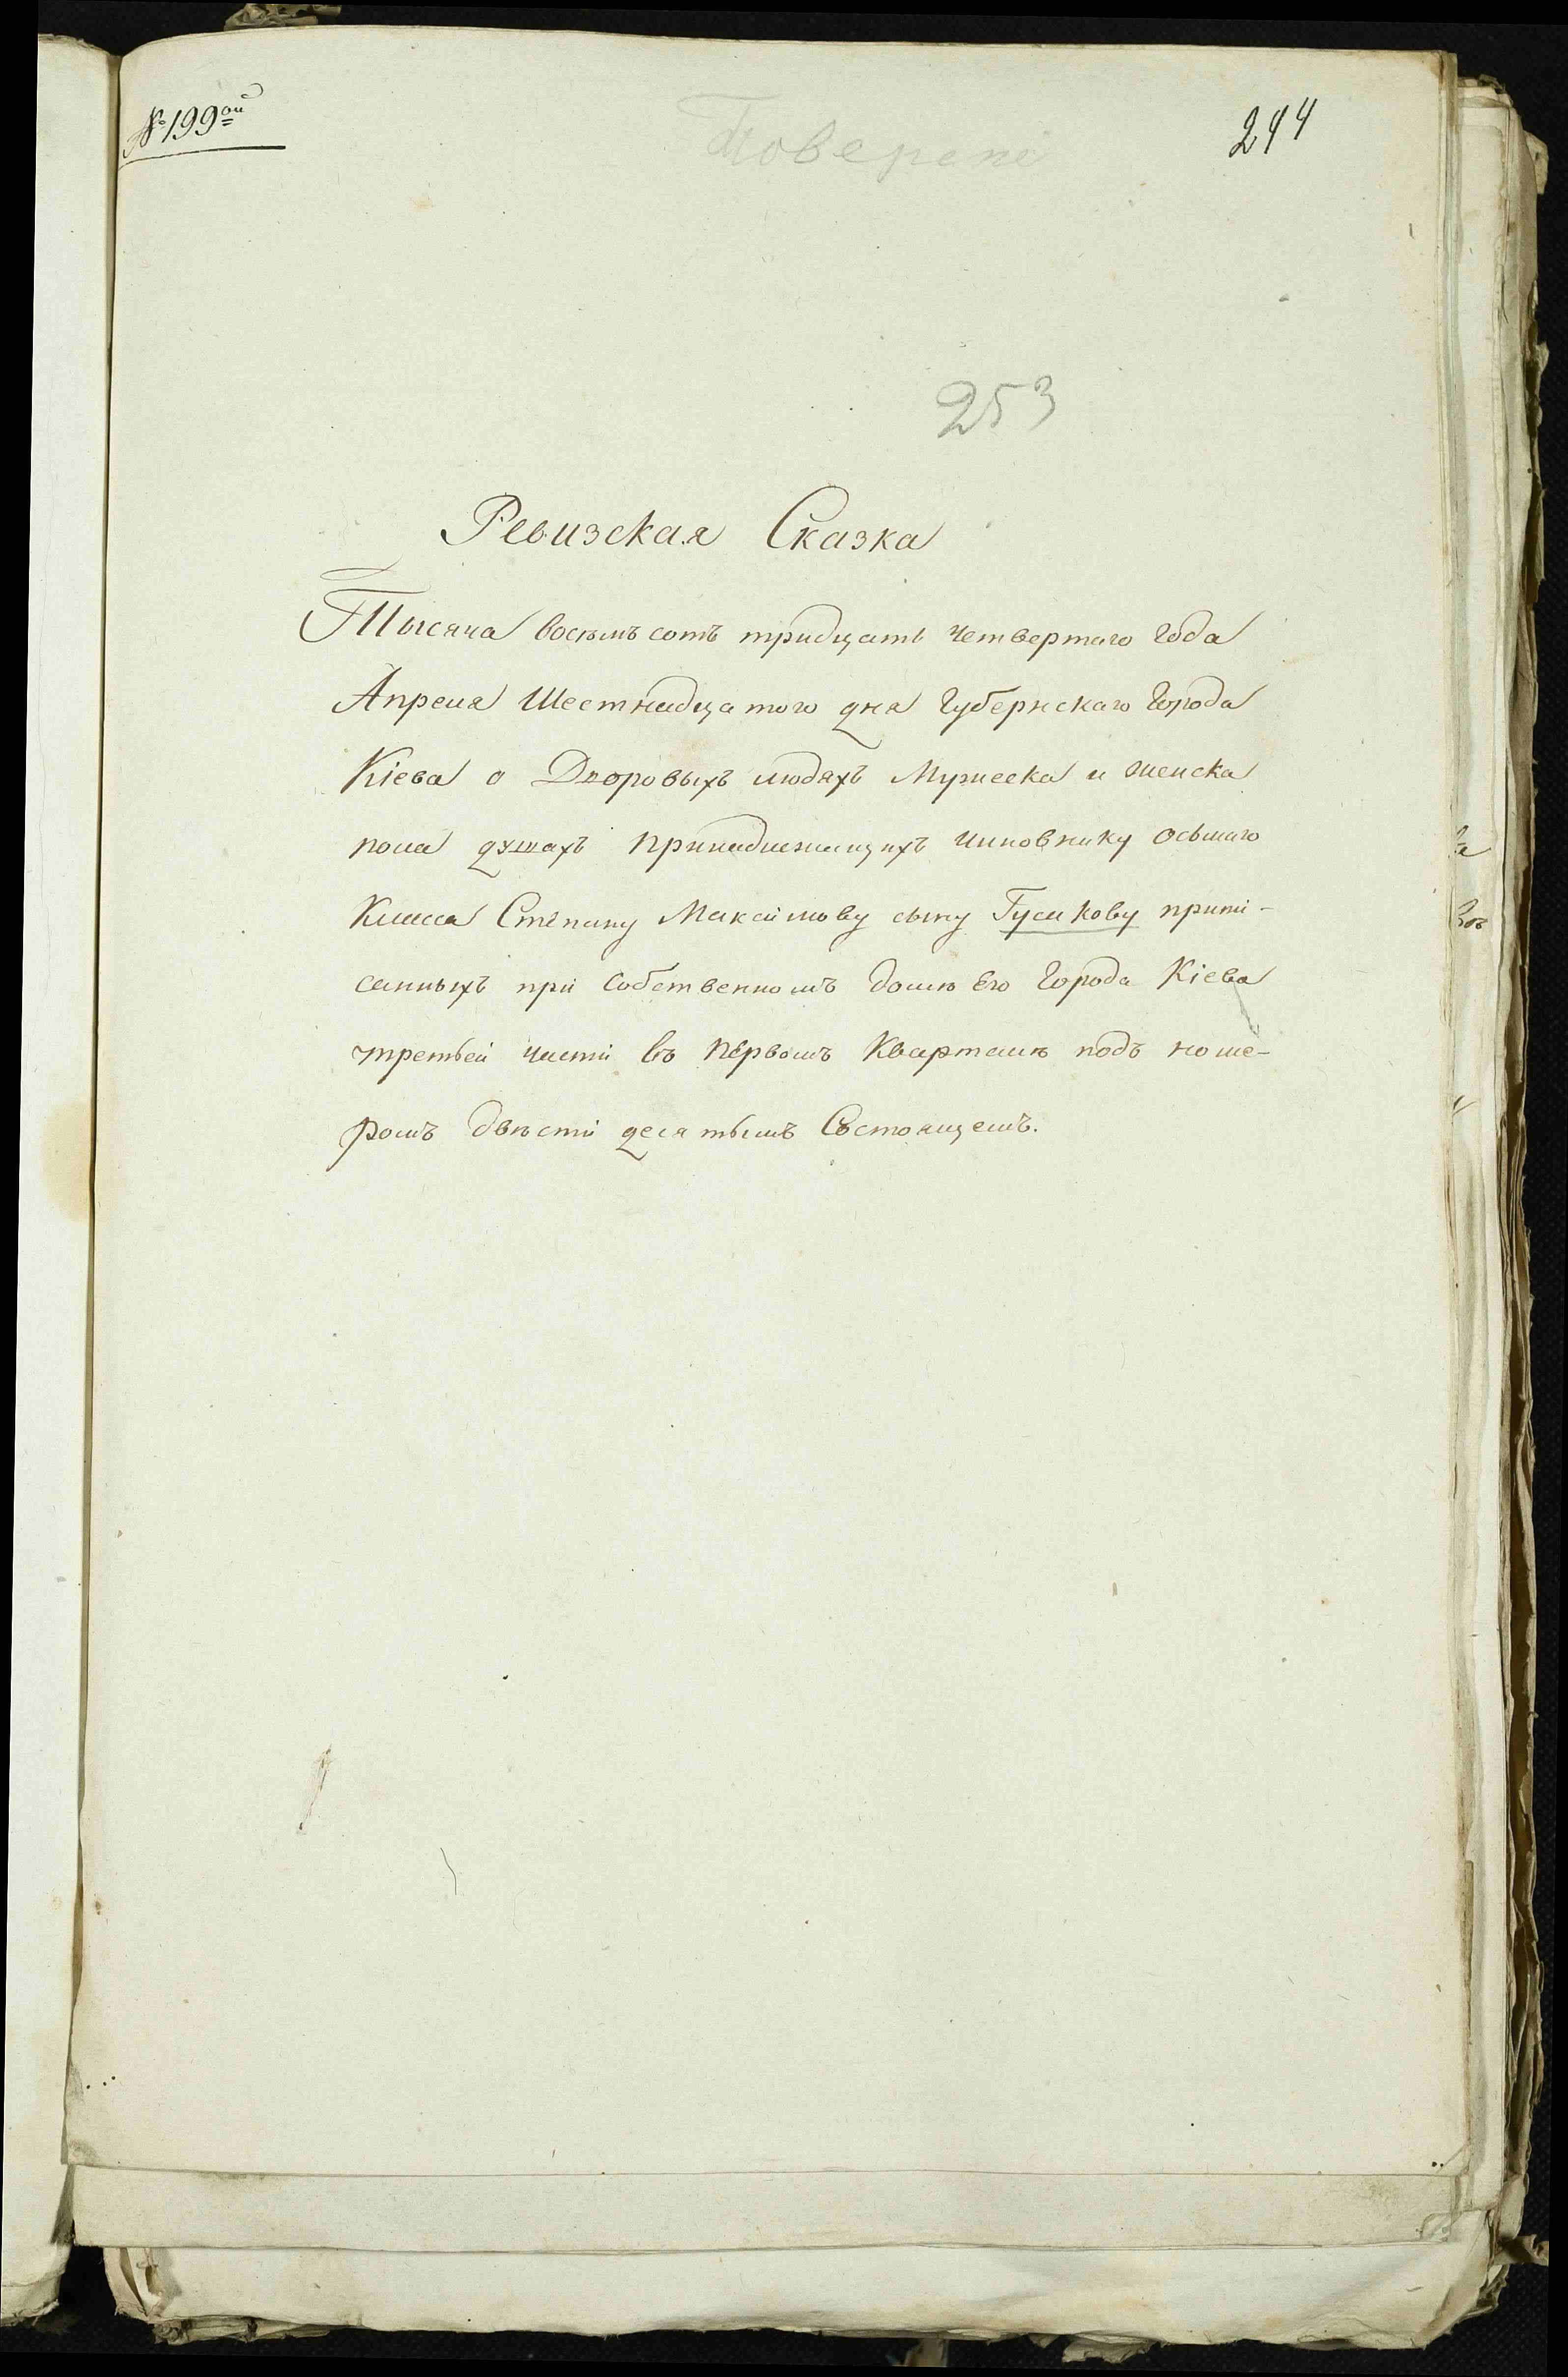 № 199ой
244
253
Ревизская Сказка
Тысяча восемъ сотъ тридцать четвертаго года
Апреля Шестнадцатого дня Губернскаго города
Кіева о Дворовыхъ людяхъ Мужеска и женска
пола душахъ принадлежащихъ чиновнику осьмаго
Класса Степану Максимову сыну Гусикову припи-
санныхъ при собственномъ домѣ его города Кіева
третьей части въ первомъ Кварталѣ подъ номе-
ромъ двѣсти десятымъ Состоящемъ.